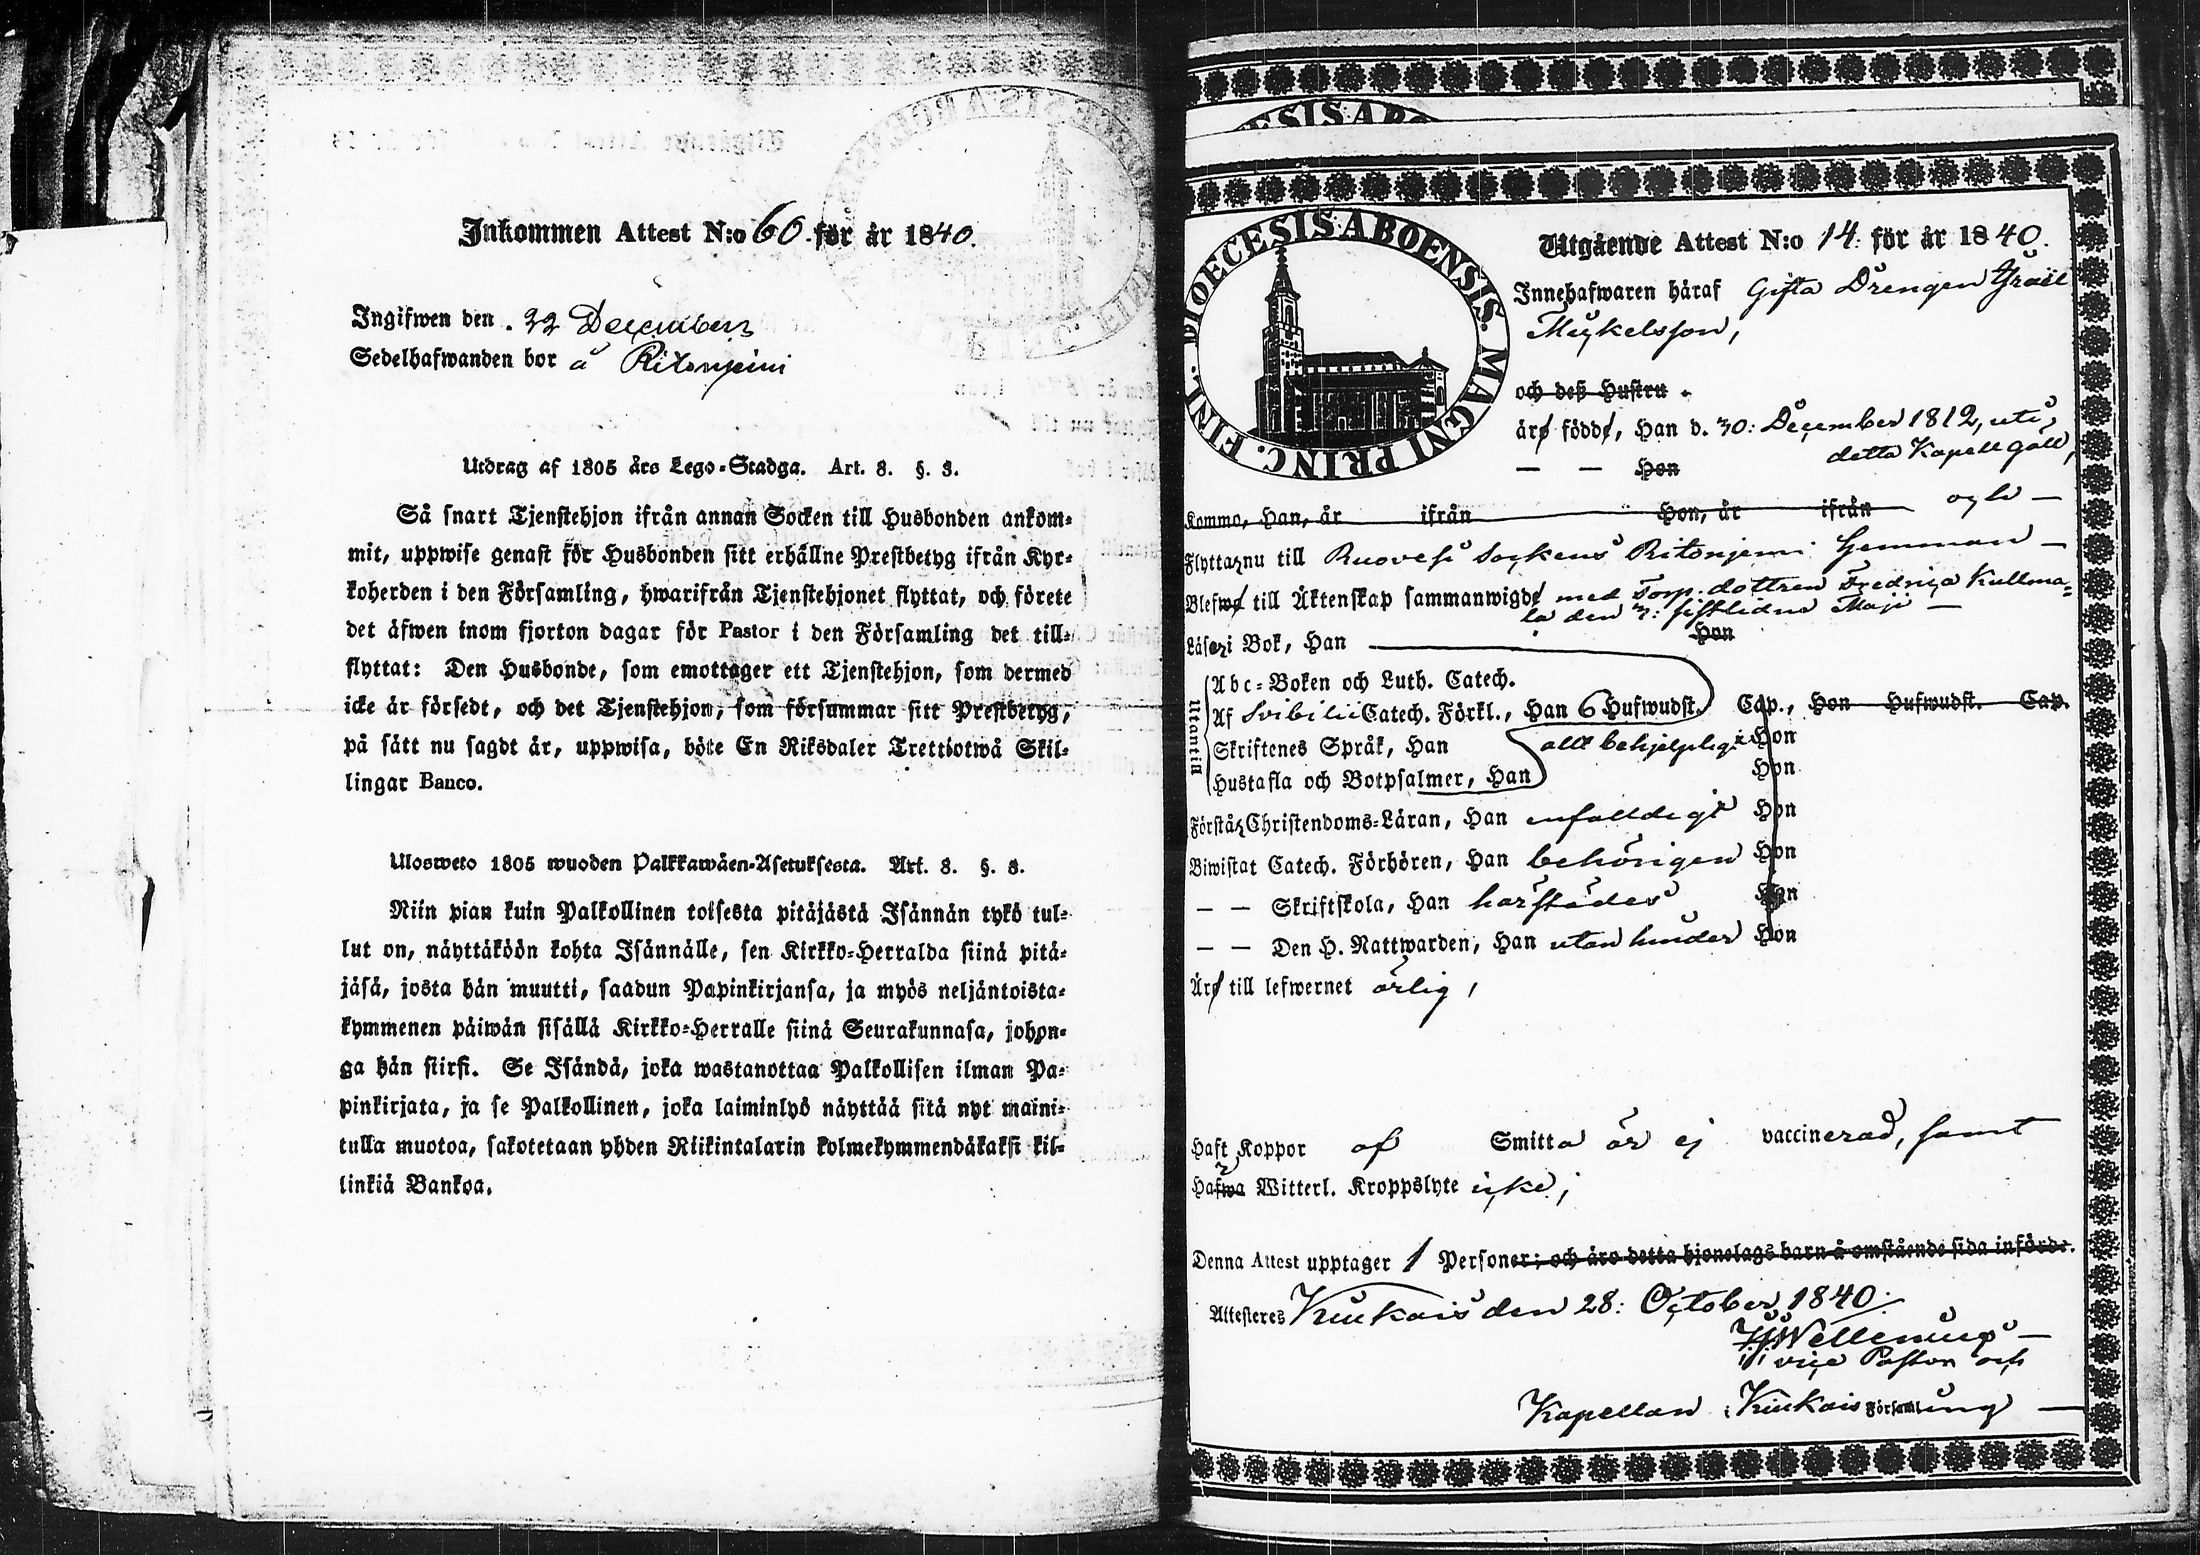 Inkommen Attest N:o 60. för år 1840.
Ingifwen den . 32 December
Sedelhafwanden bor å Ritoniemi
Utdrag af 1805 års Lego-Stadga. Art. 8. §. 3.
Så snart Tjenstehjon ifrån annan Socken till Husbonden ankom-
mit, uppwise genast för Husbonden sitt erhållne Prestbetyg ifrån Kyr-
koherden i den Församling, hwarifrån Tjenstehjonet flyttat, och förete
det äfwen inom fjorton dagar för Pastor i den Församling det till-
flyttat: Den Husbonde, som emottager ett Tjenstehjon, som dermed
icke är försedt, och det Tjenstehjon, som försummar sitt Prestbetyg,
på sätt nu sagdt är, uppwisa, böte En Riksdaler Trettiotwå Skil-
lingar Banco.
Ulosweto 1805 wuoden Palkkawäen-Asetuksesta. Art. 8. §. 3.
Niin pian kuin Palkollinen toisesta pitäjästä Isännän tykö tul-
lut on, näyttäköön kohta Isännälle, sen Kirkko-Herralda siinä pitä-
jäsä, josta hän muutti, saadun Papinkirjansa, ja myös neljäntoista-
kymmenen päiwän sisällä Kirkko-Herralle siinä Seurakunnasa, johon-
ga hän siirsi. Se Isändä, joka wastanottaa Palkollisen ilman Pa-
pinkirjata, ja se Palkollinen, joka laiminlyö näyttää sitä nyt maini-
tulla muotoa, sakotetaan yhden Riikintalarin kolmekymmendäkaksi kil-
linkiä Bankoa.
DIOECESIS ABOENSIS. MAGNI PRINC. FINL.
Utgående Attest N:o 14. för år 1840.
Innehafwaren häraf Gifta Drengen Israel
Mickelsson,
och deß Hustru .
äro född, Han d. 30: December 1812, uti
detta Kapellgäll,
— — Hon
Komma, Han, år ifrån Hon, år ifrån
Flyttar nu till Ruovesi Sockens Ritoniemi Hemman —
Blefwo till Äktenskap sammanwigde med Torp. dottren Fredrica Kullma-
la den 3: sistlidne Maji —
Läser i Bok, Han Hon
Utantill
Abc-Boken och Luth. Catech.
Af Svibilii Catech. Förkl., Han 6 Hufwudst. Cap., Hon Hufwudst. Cap.
Skriftenes Språk, Han allt behjelpligt Hon
Hustafla och Botpsalmer, Han Hon
Förstår Christendoms-Läran, Han enfaldigt Hon
Biwistat Catech. Förhören, Han behörigen Hon
— — Skriftskola, Han härstädes Hon
— — Den H. Nattwarden, Han utan hinder Hon
Äro till lefwernet ärlig,
Haft Koppor af Smitta är ej vaccinerad, samt
Hafwa Witterl. Kroppslyte icke;
Denna Attest upptager 1 Personer; och äro detta hjonelags barn å omstående sida införde.
Attesteres Kiukais den 28: October 1840.
vice Pastor och
Kapellan i Kiukais Församling —